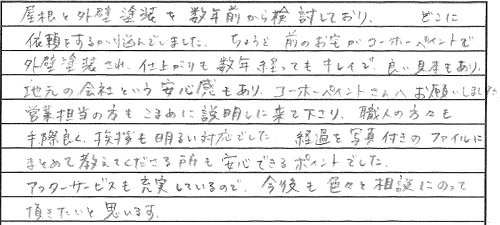 屋根と外壁塗装を数年前から検討しており、 どこに
依頼をするか悩んでました。 ちょうど 前のお宅がコーホーペイントで
外壁塗装され、仕上がりも数年経ってもキレイで 良い見本もあり、
地元の会社という安心感もあり、コーホーペイントさんへお願いしました
営業担当の方もこまめに説明しに来て下さり、 職人の方々も
手際良く、挨拶も明るい対応でした 経過を写真付きのファイルに
まとめて教えてくださる所も安心できるポイントでした。
アフターサービスも充実しているので、今後も色々と相談にのって
頂きたいと思います。